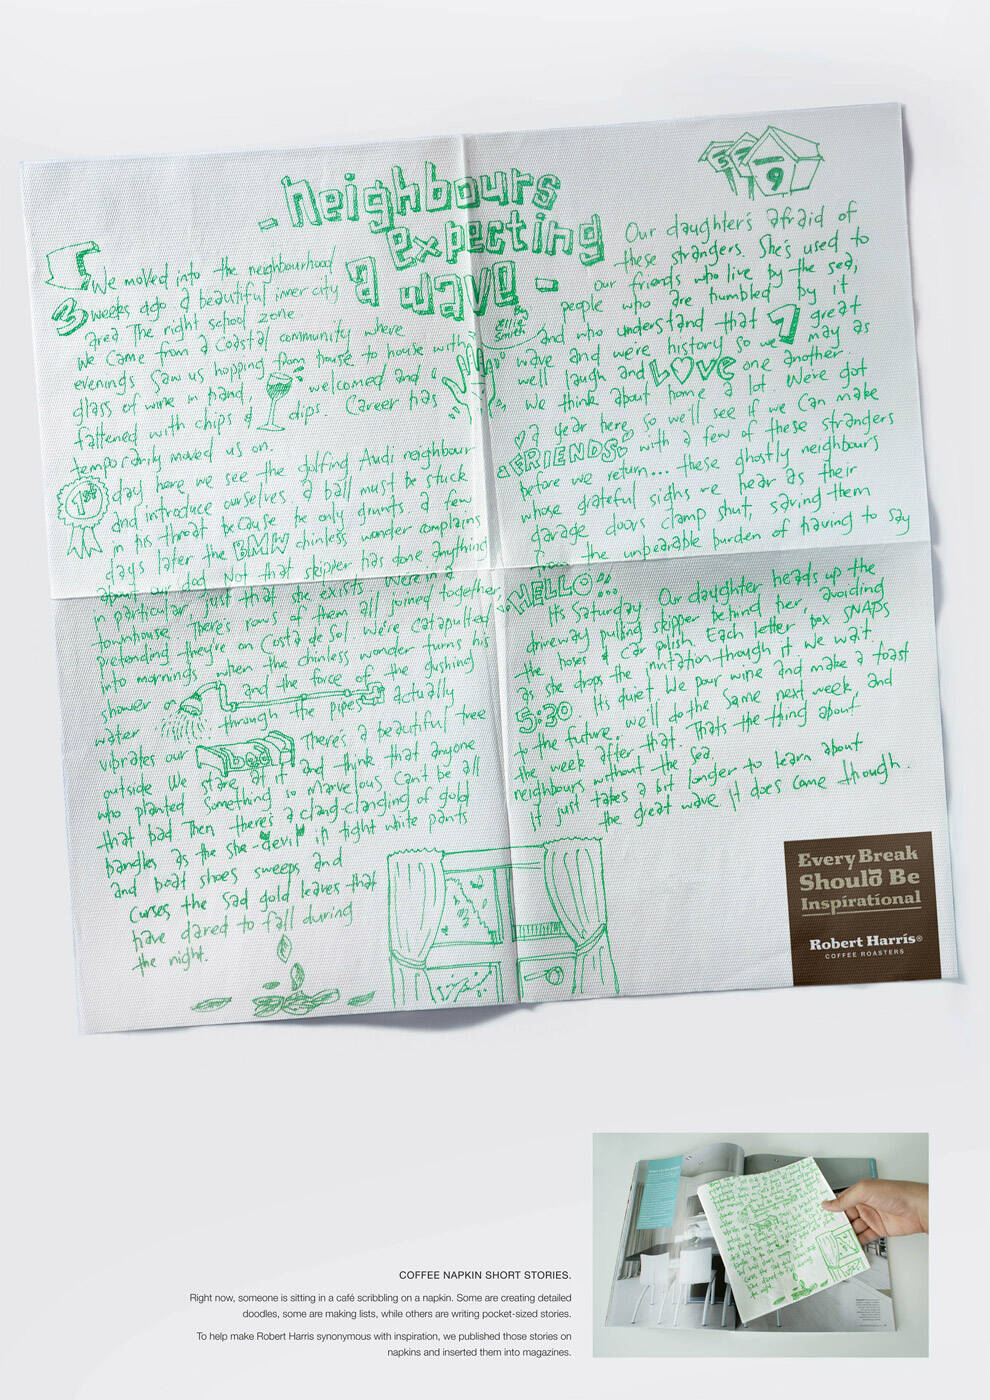 - Neighbours
expecting
a wave -
By
Ellie
Smith
We moved into the neighbourhood
3 weeks ago a beautiful inner city
area The right school zone.
We came from a coastal community where
evenings saw us hopping from house to house with a
glass of wine in hand, welcomed and
fattened with chips & dips. Career has
temporarily moved us on.
1st day here we see the golfing Audi neighbour
and introduce ourselves a ball must be stuck
in his throat because he only grunts. a few
days later the BMW chinless wonder complains
about our dog. Not that skipper has done anything
in particular, just that she exists. We're in a
townhouse. There's rows of them all joined together,
pretending they're on Costa de Sol. We're catapulted
into mornings when the chinless wonder turns his
shower on and the force of the gushing
water through the pipes actually
vibrates our There's a beautiful tree
outside We stare at it and think that anyone
who planted something so marvelous can't be all
that bad Then there's a clang-clanging of gold
bangles as the she-devil in tight white pants
and boat shoes sweeps and
curses the sad gold leaves that
have dared to fall during
the night.
5 7 9
Our daughter's afraid of
these strangers. She's used to
our friends who live by the sea,
people who are humbled by it
and who understand that 1 great
wave and we're history so we may as
well laugh and LOVE one another.
We think about home a lot. We've got
a year here so we'll see if we can make
FRIENDS with a few of these strangers
before we return... these ghostly neighbours
whose grateful sighs we hear as their
garage doors clamp shut, saving them
from the unbearable burden of having to say
HELLO!..
It's Saturday. Our daughter heads up the
driveway pulling skipper behind her, avoiding
the hoses & car polish. Each letter box SNAPS
as she drops the invitation though it We wait
5:30. It's quiet We pour wine and make a toast
to the future. We'll do the same next week, and
the week after that. Thats the thing about
neighbours without the sea.
It just takes a bit longer to learn about
the great wave It does come though.
Every Break
Should Be
Inspirational
Robert Harris®
COFFEE ROASTERS
COFFEE NAPKIN SHORT STORIES.
Right now, someone is sitting in a café scribbling on a napkin. Some are creating detailed
doodles, some are making lists, while others are writing pocket-sized stories.
To help make Robert Harris synonymous with inspiration, we published those stories on
napkins and inserted them into magazines.